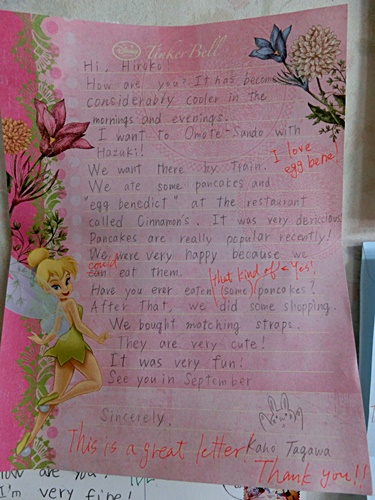 Disney Tinker Bell
Hi, Hiroko!
How are you? It has become
considerably cooler in the
mornings and evenings.
I want to Omote-Sando with
Hazuki!
I love
egg bene!
We want there by train.
We ate some pancakes and
"egg benedict" at the restaurant
called Cinnamon's. It was very dericious!
Pancakes are really popular recently!
We were very happy because we
could
can eat them.
what kind of Yes!
Have you ever eaten (some) pancakes?
After that, we did some shopping.
We bought matching straps.
They are very cute!
It was very fun!
See you in September
Sincerely,
Kano Tagawa
This is a great letter
Thank you!!
How are you?
I'm very fine!